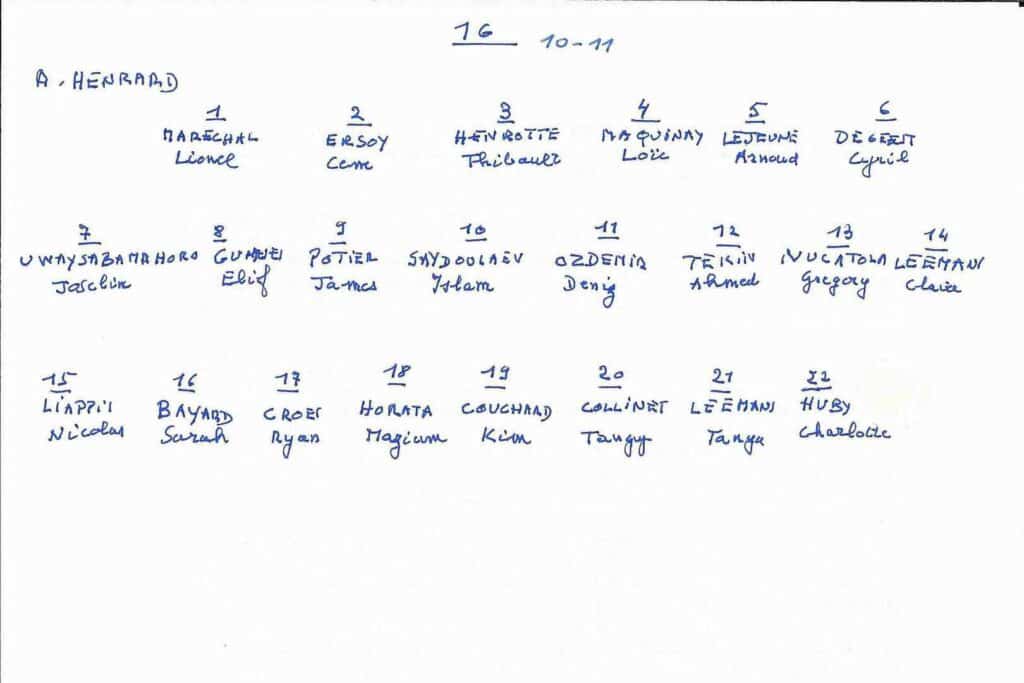 16 10-11
A. HENRARD
1 2 3 4 5 6
MARECHAL ERSOY HENROTTE MAQUINAY LEJEUNE DEGEEST
Lionel Cem Thibault Loïc Arnaud Cyril
7 8 9 10 11 12 13 14
UWAYSABAMAHORO POTIER SAYDOULAEV OZDEMIR TEKIN NUCATOLA LEEMANS
Joselin Elif James Islam Deniz Ahmed Gregory Claire
15 16 17 18 19 20 21 22
BAYARD CROES HORATA COUCHARD COLLINET LEEMANS HUBY
Nicolas Sarah Ryan Kim Tanguy Charlotte